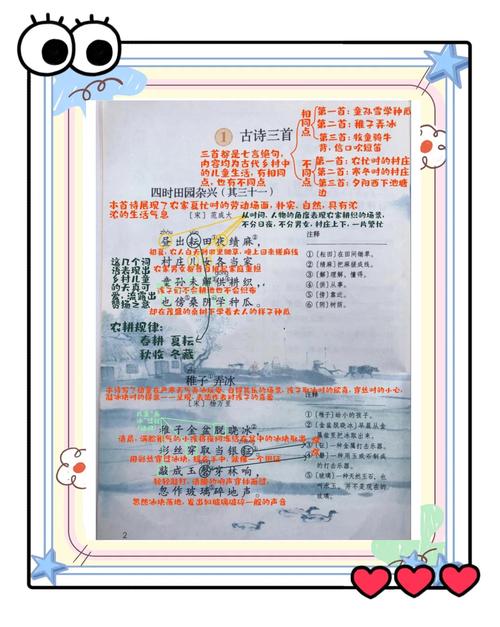 1 古诗三首
三首都是七言绝句，
内容均为古代乡村中
的儿童生活，有相同
点，也有不同点
相同点
第一首：童孙雪学种瓜
第二首：稚子弄冰
第三首：牧童骑牛
背，信口吹短笛
不同点
第一首：农忙时的村庄
第二首：寒冬时的村庄
第三首：夕阳西下池塘
边
四时田园杂兴（其三十一）
本首诗展现了农家夏忙时的劳动场面，朴实，自然，只有浓
浓的生活气息
[宋] 范成大
从时间、人物的角度表现农家耕织的场景，
不分日夜，不分男女，村庄上下，一片繁忙
昼出耘田夜绩麻，
初夏，农人白天到田里锄草，晚上回来搓麻线
村庄儿女各当家。
农家男女都各自担起家庭重担
童孙未解供耕织，
孩子们不会耕地也不会织布
也傍桑阴学种瓜。
却在茂盛的桑树下学着大人的样子种瓜
这几个词
语表现出
乡村儿童
的天真可
爱，流露出
赞扬之意
农耕规律：
春耕 夏耘
秋收 冬藏
注释
① 〔耘田〕在田间锄草。
② 〔绩麻〕把麻搓成线。
③ 〔解〕理解，懂得。
④ 〔供〕从事。
⑤ 〔傍〕靠近。
⑥ 〔阴〕树荫。
稚子弄冰
[宋] 杨万里
稚子金盆脱晓冰，
清晨，满脸稚气的小孩将夜间冻结在盆中的冰块取出
彩丝穿取当银钲。
敲成玉磬穿林响，
轻轻敲打，清脆的响声穿林而过
忽作玻璃碎地声。
忽然冰块落地，发出如玻璃破碎一般的声音
注释
① 〔稚子〕幼小的孩子。
② 〔金盆脱晓冰〕早晨从金
属盆里把冰取出来。
③ 〔钲〕一种金属打击乐器。
④ 〔磬〕一种用玉或石制成
的打击乐器。
⑤ 〔玻璃〕一种天然玉石，也
叫水玉，并不是现在的
玻璃。
2